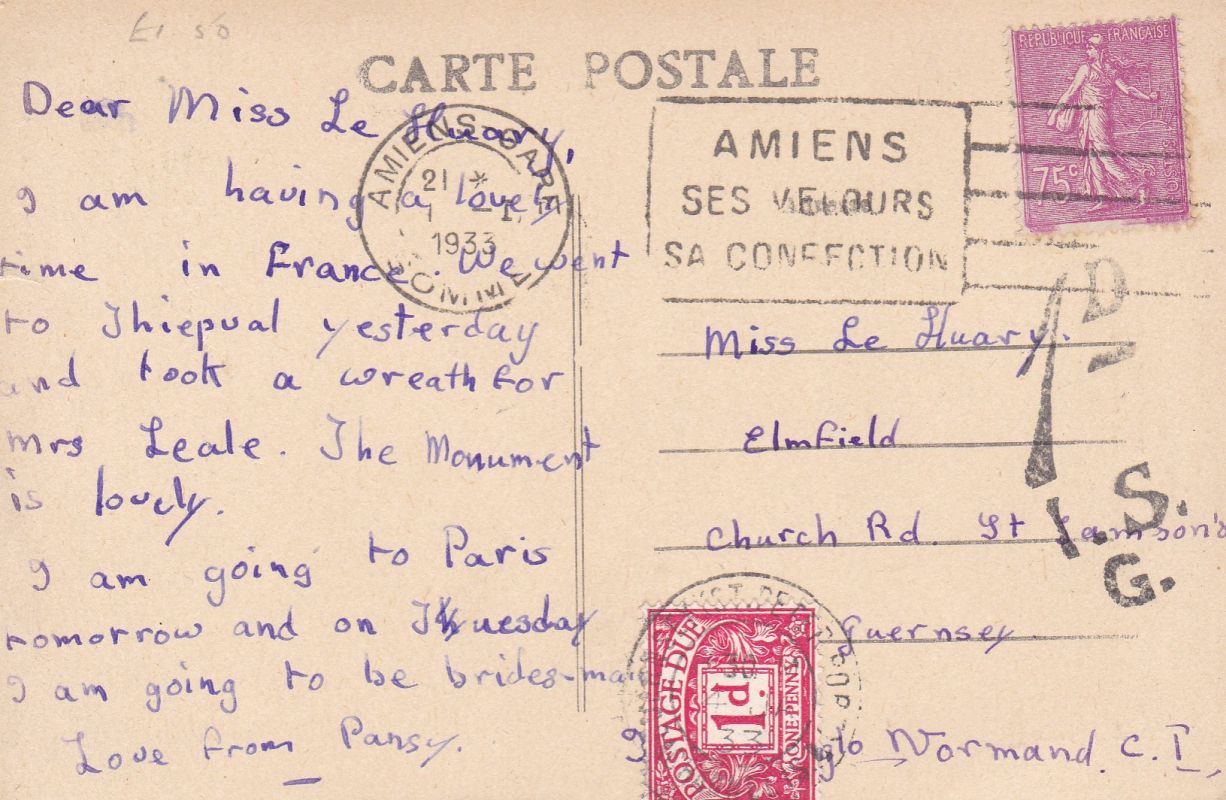 £1.50
CARTE POSTALE
Dear Miss Le Huary,
I am having a lovely
time in France. We went
to Thiepval yesterday
and took a wreath for
Mrs Leale. The Monument
is lovely.
I am going to Paris
tomorrow and on Tuesday
I am going to be brides-maid
Love from Pansy.
AMIENS GARE
21 *
1933
SOMME
AMIENS
SES VELOURS
SA CONFECTION
REPUBLIQUE FRANÇAISE
75c
POSTES
1D
I.S.G.
Miss Le Huary.
Elmfield
Church Rd. St Samson's
Guernsey
Normand. C.I,
POSTAGE DUE
1d
ONE PENNY
33